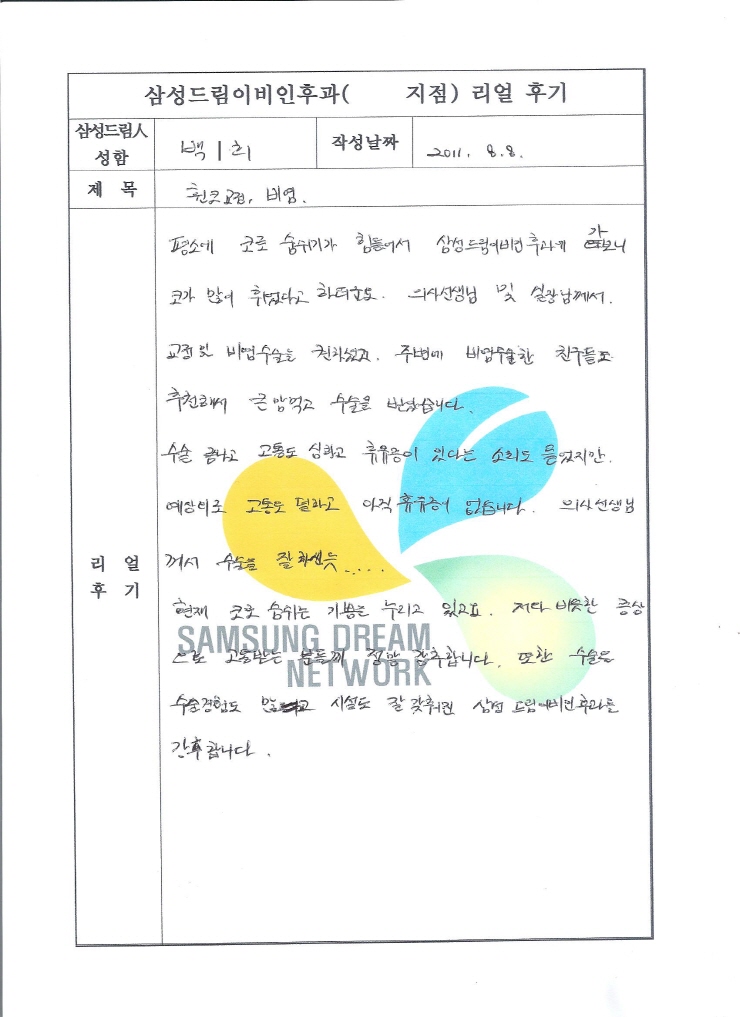 삼성드림이비인후과( 지점) 리얼 후기
삼성드림人
성함
백ㅣ희
작성날짜
2011. 8. 8.
제 목
휜코교정, 비염.
리 얼
후 기
평소에 코로 숨쉬기가 힘들어서 삼성드림이비인후과에 가보니
코가 많이 휘었다고 하더군요. 의사선생님 및 실장님께서.
교정 및 비염수술을 권하셨고. 주변에 비염수술한 친구들도
추천해서 큰 맘먹고 수술을 받았습니다.
수술 끝나고 고통도 심하고 휴유증이 있다는 소리도 들었지만.
예상외로 고통도 덜하고 아직 휴유증이 없습니다. 의사선생님
께서 수술을 잘 하신듯.....
현재 코로 숨쉬는 기쁨을 누리고 있고요. 저와 비슷한 증상
으로 고통받는 분들께 정말 강추합니다. 또한 수술은
수술경험도 많고 시설도 잘 갖춰진 삼성드림이비인후과를
강추합니다.
SAMSUNG DREAM
NETWORK